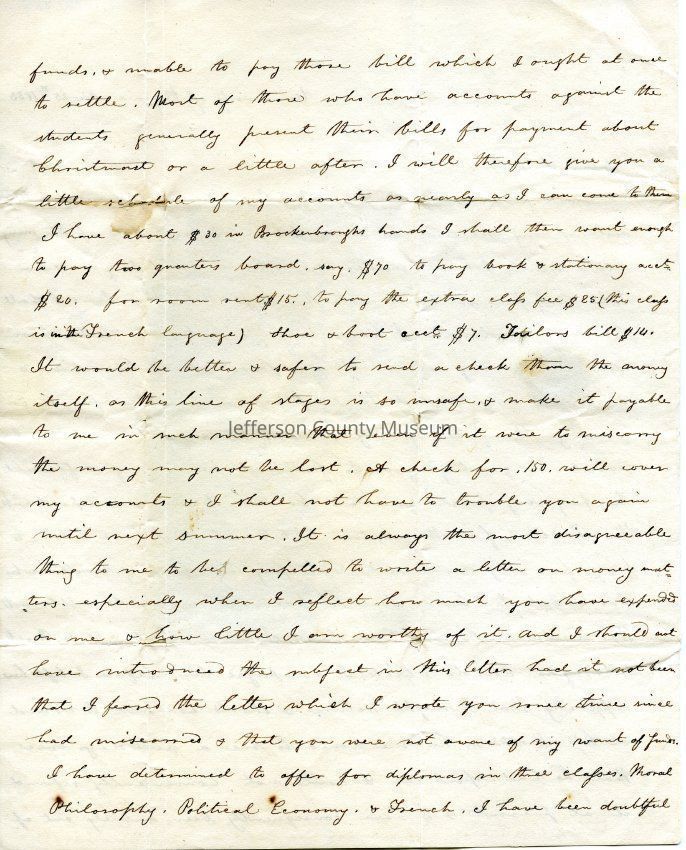 funds, & unable to pay those bill which I ought at once
to settle. Most of those who have accounts against the
students generally present their bills for payment about
Christmast or a little after. I will therefore give you a
little schedule of my accounts as nearly as I can come to them
I have about $30 in Brockenbroughs hands I shall then want enough
to pay two quarters board. say. $70 to pay book & stationary acct-
$20. for room rent $15., to pay the extra class fee $25 (this class
is in the French language) Shoe & boot acct. $7. Tailors bill $14.
It would be better & safer to send a check than the money
itself. as this line of stages is so unsafe, & make it payable
to me in such manner that even if it were to miscarry
Jefferson County Museum
the money may not be lost. A check for .150. will cover
my accounts & I shall not have to trouble you again
until next summer. It is always the most disagreeable
thing to me to be compelled to write a letter on money mat=
=ters. especially when I reflect how much you have expended
on me & how little I am worthy of it. And I should not
have introduced the subject in this letter had it not been
that I feared the letter which I wrote you some time since
had miscarried & that you were not aware of my want of funds.
I have determined to offer for diplomas in three classes. Moral
Philosophy. Political Economy. & French. I have been doubtful